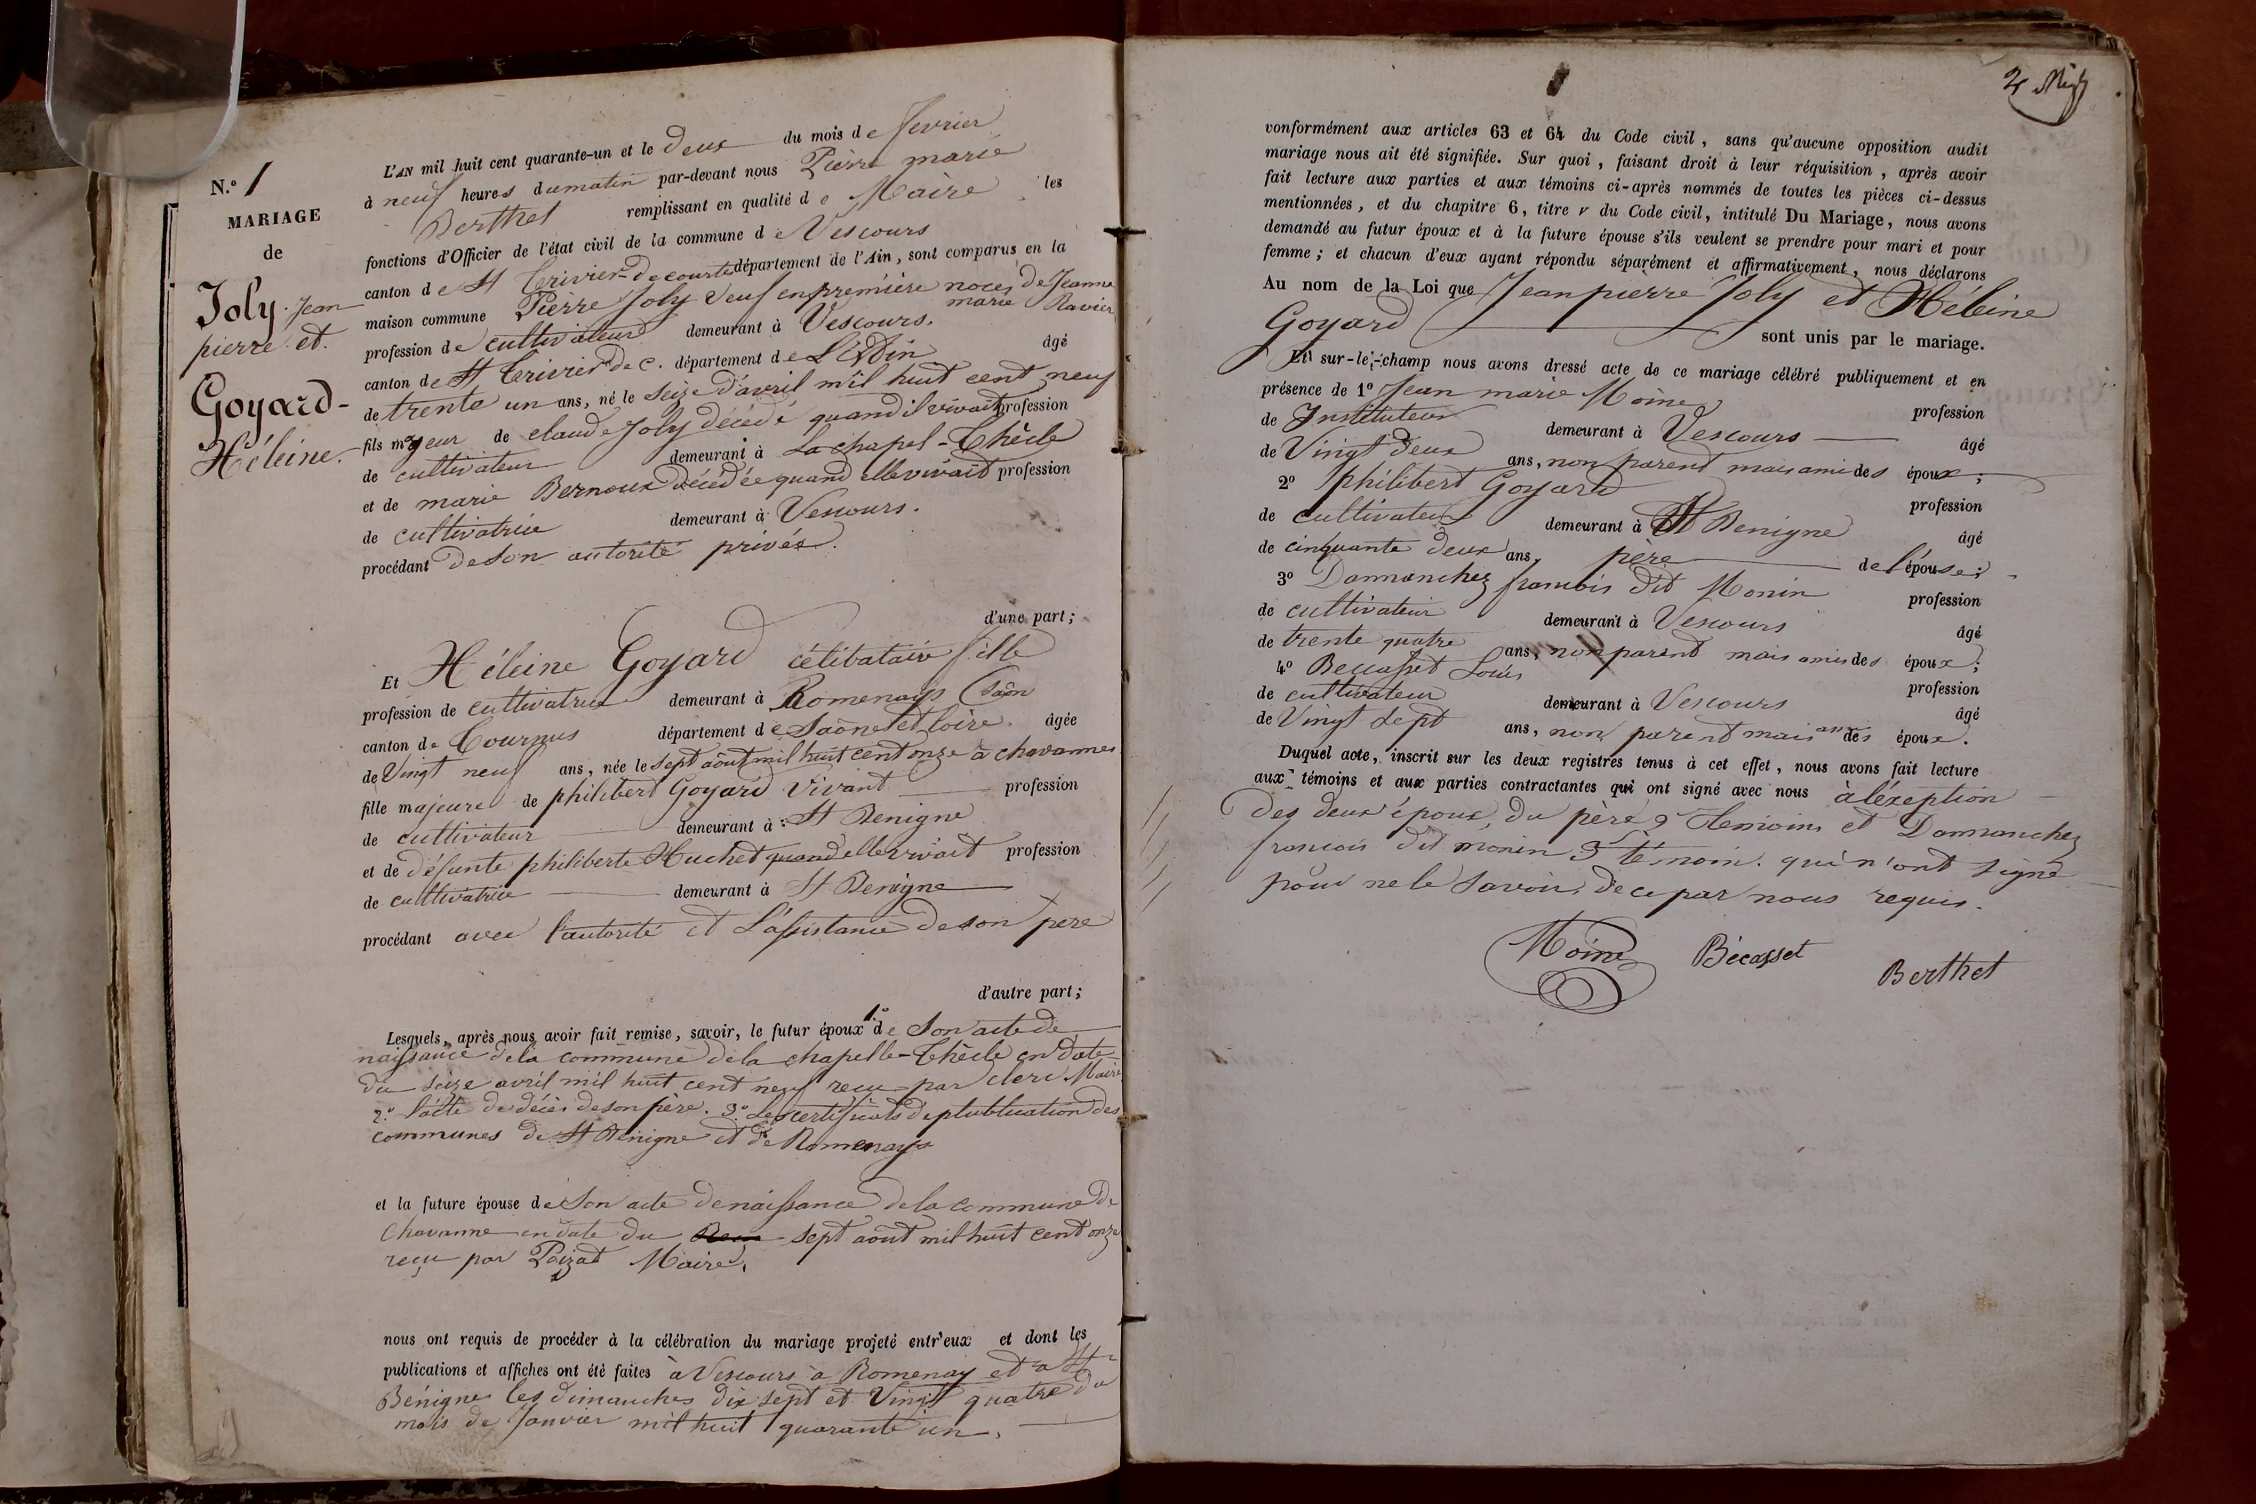 N.º 1
MARIAGE
de
Joly Jean
pierre et.
Goyard-
Héleine.
L'AN mil huit cent quarante-un et le deux du mois de fevrier
à neuf heures dumatin par-devant nous Pièrre marie
Berthet remplissant en qualité de Maire les
fonctions d'Officier de l'état civil de la commune de Vescours
canton de St Trivier-de courtes département de l'Ain, sont comparus en la
maison commune Pierre Joly veuf enpremière noces de Jeanne
marie Ravier
profession de cultivateur demeurant à Vescours.
canton de St Trivier de C. département de L'Ain âgé
de trente un ans, né le seize d'avril mil huit cent neuf
fils majeur de claude Joly décédé quand il vivait profession
de cultivateur demeurant à La chapel-Thècle
et de marie Bernoux décédée quand elle vivait profession
de cultivatrice demeurant à Vescours.
procédant de son autorité privée.
d'une part;
Et Héleine Goyard célibataire fille
profession de cultivatrice demeurant à Romenays (Saôn
canton de Tournus département de Saône et loire. âgée
de Vingt neuf ans, née le sept août mil huit cent onze à chavannes
fille majeure de philibert Goyard Vivant profession
de cultivateur demeurant à St Benigne
et de défunte philiberte Huchet quand elle vivait profession
de cultivatrice demeurant à St Benigne
procédant avec l'autorité et L'assistance de son pere
d'autre part;
Lesquels, après nous avoir fait remise, savoir, le futur époux 1.º de Son acte de
naissance dela commune dela chapelle-Thècle en date
du seize avril mil huit cent neuf reçu par clerc Maire
2.º l'acte de décès de son père. 3.º Les certificats de plublication des
communes de St Benigne et de Romenays
et la future épouse de Son acte de naissance de la commune de
Chavanne en date du sept août mil huit cent onze
reçu par Poizat Maire.
nous ont requis de procéder à la célébration du mariage projeté entr'eux et dont les
publications et affiches ont été faites à Vescours à Romenay et a St
Bénigne les dimanches dix sept et Vingt quatre du
mois de Janvier mil huit quarante un.
conformément aux articles 63 et 64 du Code civil, sans qu'aucune opposition audit
mariage nous ait été signifiée. Sur quoi, faisant droit à leur réquisition, après avoir
fait lecture aux parties et aux témoins ci-après nommés de toutes les pièces ci-dessus
mentionnées, et du chapitre 6, titre v du Code civil, intitulé Du Mariage, nous avons
demandé au futur époux et à la future épouse s'ils veulent se prendre pour mari et pour
femme; et chacun d'eux ayant répondu séparément et affirmativement, nous déclarons
Au nom de la Loi que Jean pierre Joly et Héleine
Goyard sont unis par le mariage.
Et sur-le-champ nous avons dressé acte de ce mariage célébré publiquement et en
présence de 1º Jean marie Moine profession
de Instituteur demeurant à Vescours âgé
de Vingt deux ans, non parent mais ami des époux;
2º philibert Goyard profession
de cultivateur demeurant à St Benigne âgé
de cinquante deux ans, père de l'épouse;
3º Dammanchez francois dit Monin profession
de cultivateur demeurant à Vescours âgé
de trente quatre ans, non parent mais amis des époux;
4º Beccasset Louis profession
de cultivateur demeurant à Vescours âgé
de Vingt sept ans, non parent mais amis des époux.
Duquel acte, inscrit sur les deux registres tenus à cet effet, nous avons fait lecture
aux témoins et aux parties contractantes qui ont signé avec nous à l'exeption
des deux époux, du père 2e temoin et Dammanchez
francois dit monin 3e témoin. qui n'ont signé
pour ne le savoir, de ce par nous requis.
Moine Bécasset Berthet